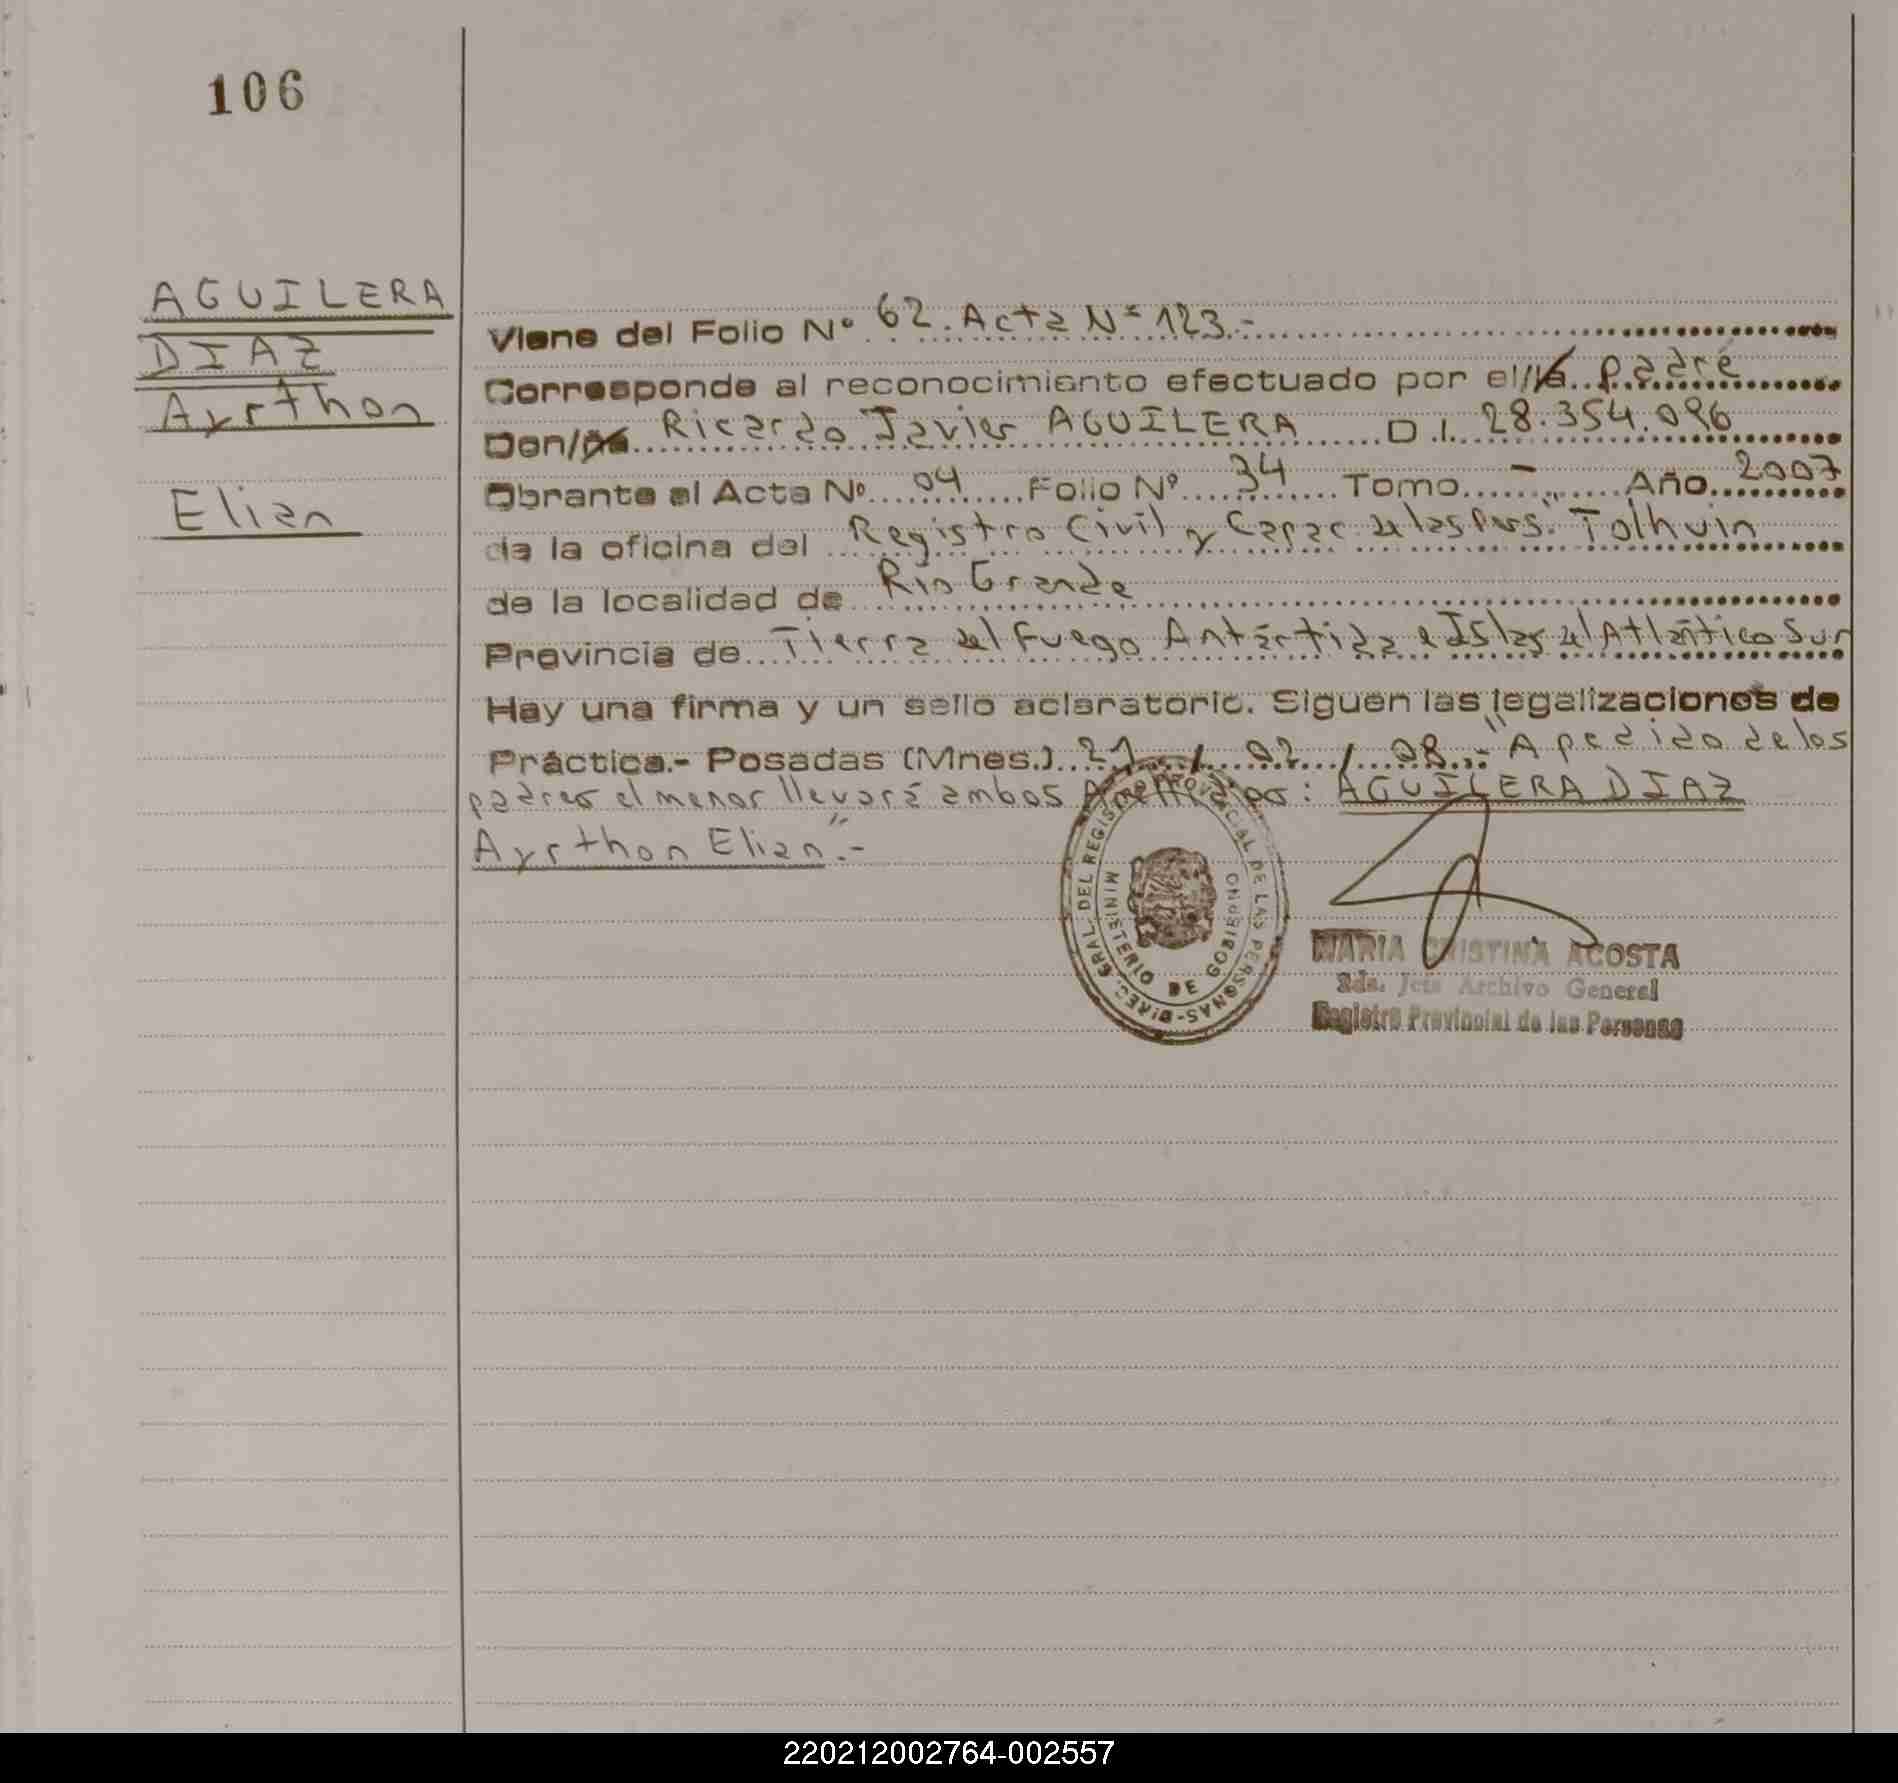 106
AGUILERA
DIAZ
Ayrthon
Elian
Viene del Folio Nº 62. Acta Nº 123.-
Corresponde al reconocimiento efectuado por el/la padre
Don/ña Ricardo Javier AGUILERA D.I. 28.354.096
Obrante al Acta Nº 04 Folio Nº 34 Tomo - Año 2007
de la oficina del Registro Civil y Capac. de las Pers. "Tolhuin
de la localidad de Rio Grande
Provincia de Tierra del Fuego Antártida e Islas del Atlántico Sur
Hay una firma y un sello aclaratorio. Siguen las legalizaciones de
Práctica.- Posadas (Mnes.) 21 / 02 / 08.- "A pedido de los
padres el menor llevará ambos Apellidos: AGUILERA DIAZ
Ayrthon Elian".-
DIREC. GRAL. DEL REGISTRO PROVINCIAL DE LAS PERSONAS-
MINISTERIO DE GOBIERNO
MARIA CRISTINA ACOSTA
2da. Jefa Archivo General
Registro Provincial de las Personas
220212002764-002557